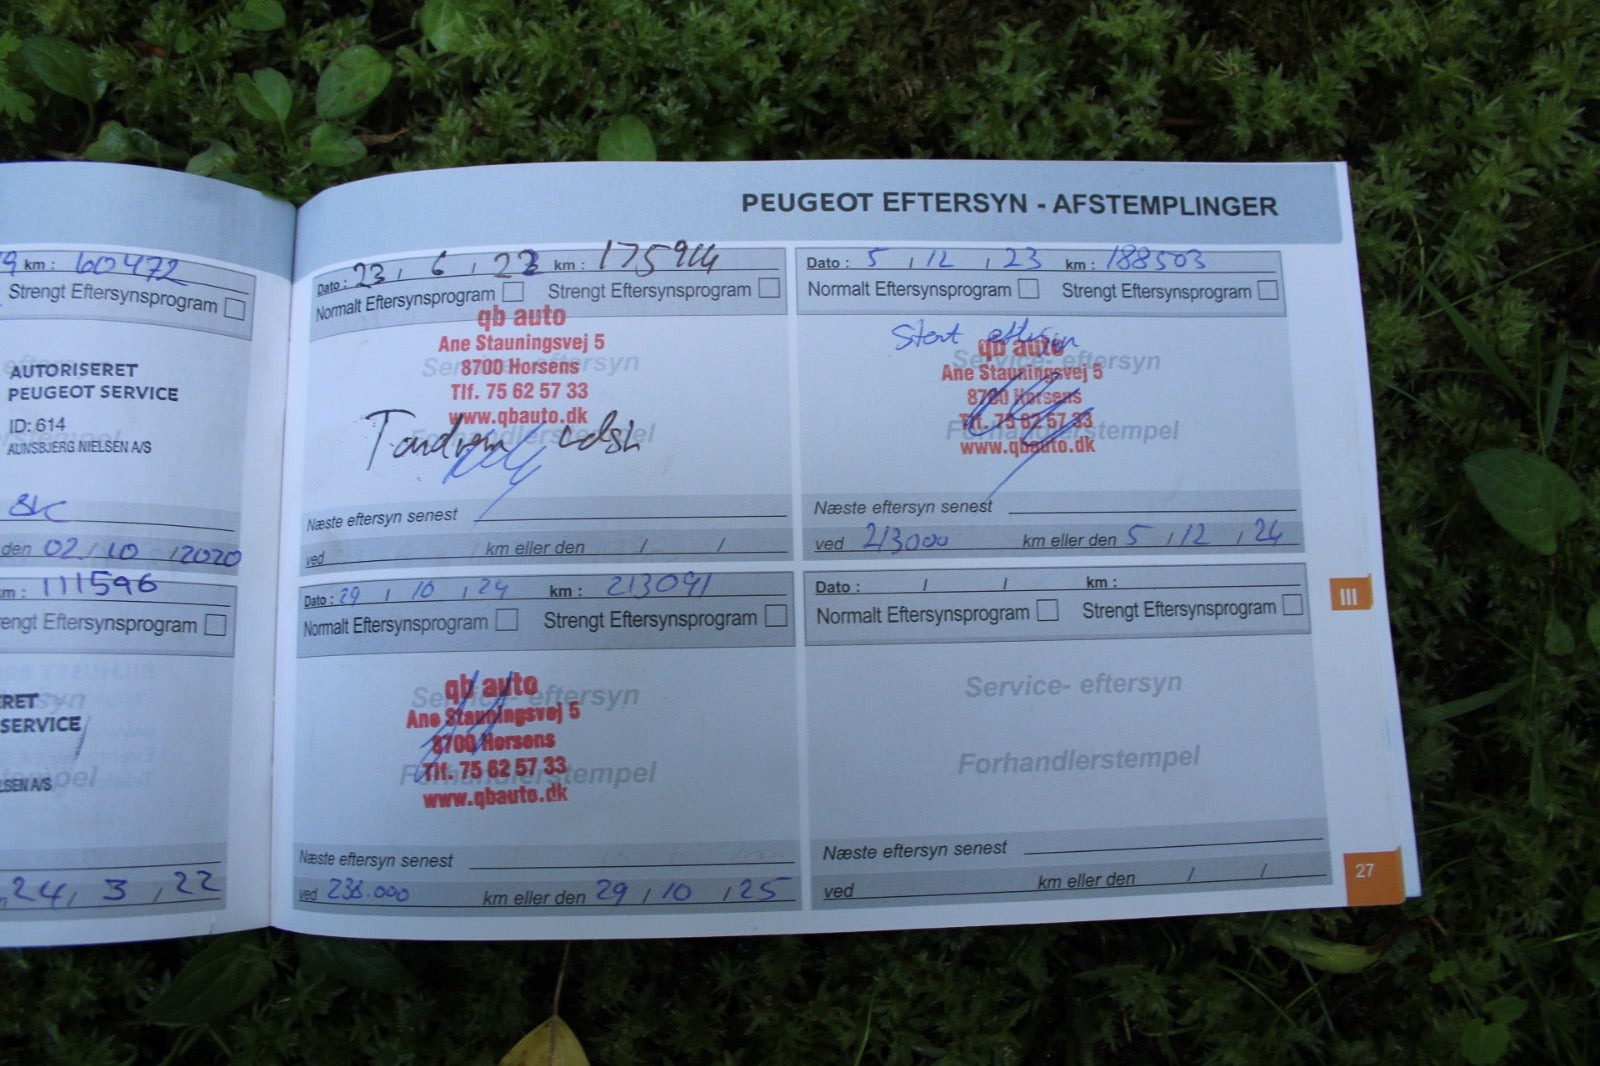 PEUGEOT EFTERSYN - AFSTEMPLINGER
9 km : 60472
Strengt Eftersynsprogram
AUTORISERET
PEUGEOT SERVICE
ID: 614
AUNSBJERG NIELSEN A/S
den 02 / 10 / 2020
km : 111596
rengt Eftersynsprogram
RET
SERVICE
LSEN A/S
24 / 3 / 22
Dato : 23 / 6 / 23 km : 175914
Normalt Eftersynsprogram Strengt Eftersynsprogram
qb auto
Ane Stauningsvej 5
Service- eftersyn
8700 Horsens
Tlf. 75 62 57 33
www.qbauto.dk
Forhandlerstempel
Tandrem
Næste eftersyn senest
ved km eller den / /
Dato : 5 / 12 / 23 km : 188503
Normalt Eftersynsprogram Strengt Eftersynsprogram
Stort eftersyn
qb auto
Service- eftersyn
Ane Stauningsvej 5
8700 Horsens
Tlf. 75 62 57 33
Forhandlerstempel
www.qbauto.dk
Næste eftersyn senest
ved 213000 km eller den 5 / 12 / 24
Dato : 29 / 10 / 24 km : 213091
Normalt Eftersynsprogram Strengt Eftersynsprogram
qb auto
Service- eftersyn
Ane Stauningsvej 5
8700 Horsens
Tlf. 75 62 57 33
Forhandlerstempel
www.qbauto.dk
Næste eftersyn senest
ved 238.000 km eller den 29 / 10 / 25
Dato : / / km :
Normalt Eftersynsprogram Strengt Eftersynsprogram
Service- eftersyn
Forhandlerstempel
Næste eftersyn senest
ved km eller den / /
III
27